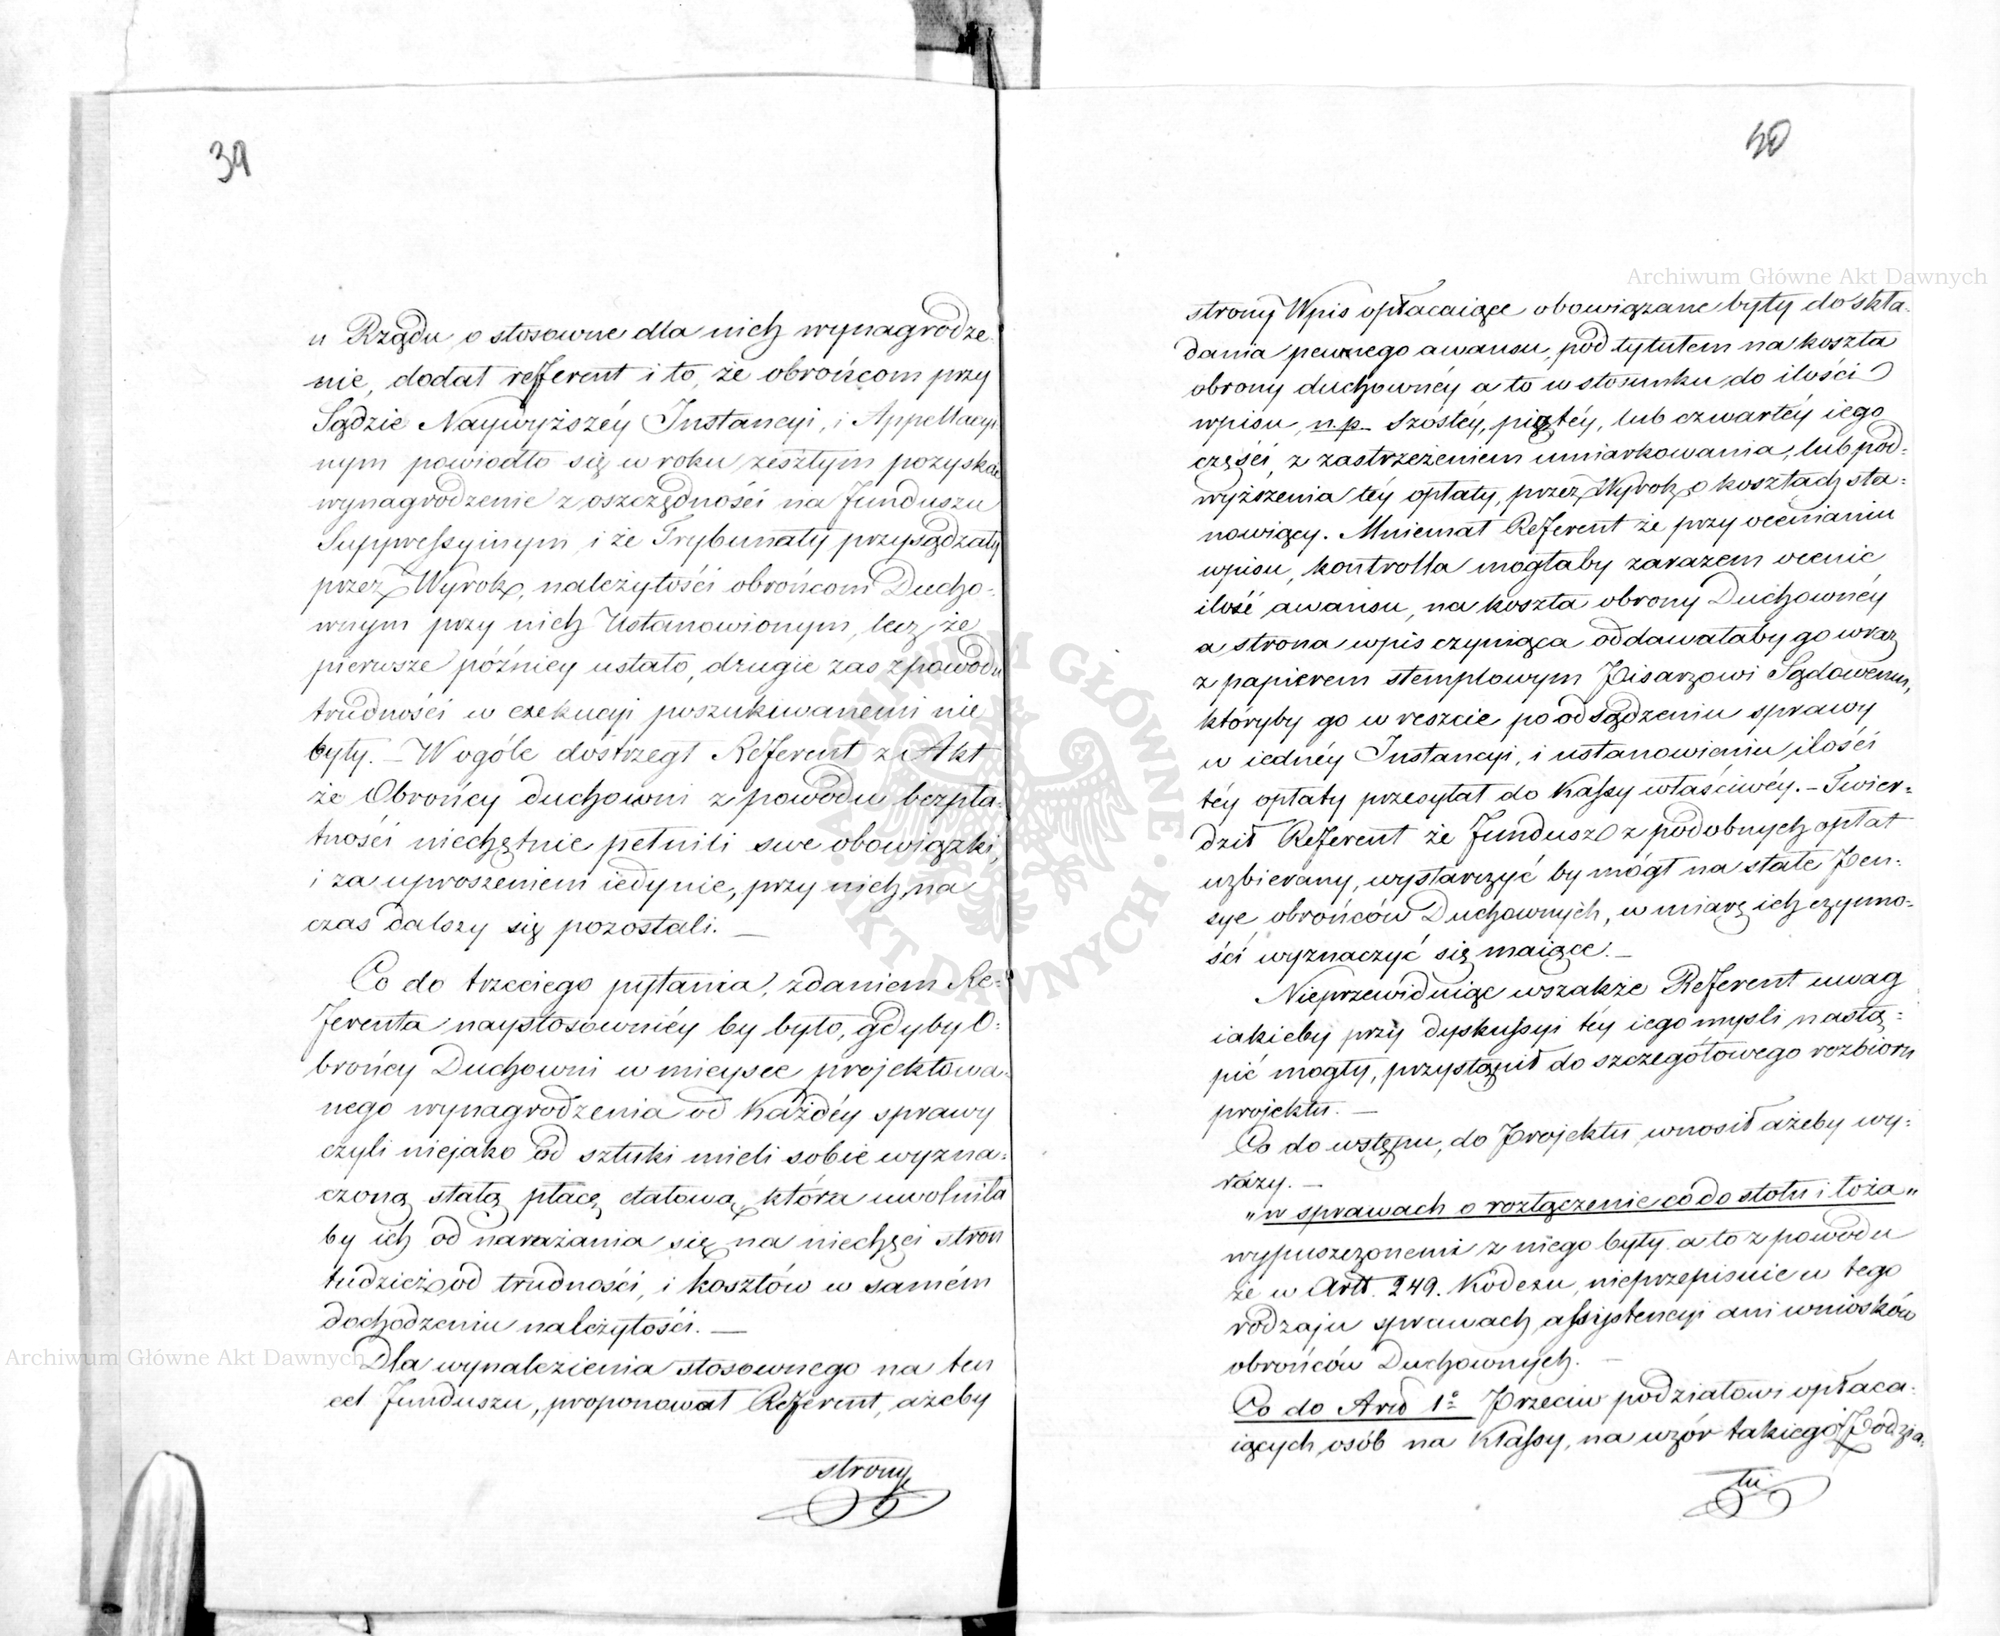 39
u Rządu o stosowne dla nich wynagrodze-
nie, dodał refferent i to, że obrońcom przy
Sądzie Naywyższéy Instancyi, i Appellacyi
nym powiodło się w roku zeszłym pozyskać
wynagrodzenie z oszczędności na funduszu
Suppressyinym, i że Trybunały przysądzały
przez Wyrok, należytości obrońcom Ducho-
wnym przy nich Ustanowionym, lecz że
pierwsze późniey ustało, drugie zas z powodu
trudności w exekucyi poszukiwanemi nie
były. — W ogóle dostrzegł Referent z Akt
że Obrońcy duchowni z powodu bezpła-
tności niechętnie pełnili swe obowiązki,
i za uproszeniem iedynie, przy nich na
czas dalszy się pozostali. —
Co do trzeciego pytania, zdaniem Re-
ferenta naystosowniéy by było, gdyby O-
brońcy Duchowni w mieysce projektowa-
nego wynagrodzenia od każdéy sprawy
czyli niejako od sztuki mieli sobie wyzna-
czoną stałą płacę etatową, która uwolniła
by ich od narażania się na niechęci stron
tudzież od trudności, i kosztów w samém
dochodzeniu należytości. —
Dla wynalezienia stosownego na ten
cel funduszu, proponował Referent, ażeby
strony
40
strony Wpis opłacaiące obowiązane były do skła-
dania pewnego awansu, pod tytułem na koszta
obrony duchownéy a to w stosunku do ilości
wpisu, n.p. szóstéy, piątéy, lub czwartéy iego
części, z zastrzeżeniem umiarkowania, lub pod-
wyższenia téy opłaty, przez Wyrok o kosztach sta-
nowiący. Mniemał Referent że przy ocenianiu
wpisu, kontrolla mogłaby zarazem ocenić
ilość awansu, na koszta obrony Duchownéy
a strona wpis czyniąca oddawałaby go wraz
z papierem stemplowym Pisarzowi Sądowemu,
któryby go w reszcie po odsądzeniu sprawy
w iednéy Instancyi, i ustanowieniu ilości
téy opłaty przesyłał do Kassy właściwéy. — Twier-
dził Referent że fundusz z podobnych opłat
uzbierany, wystarczyć by mógł na stałe Pen-
sye obrońców Duchownych, w miarę ich czynno-
ści wyznaczyć się maiące. —
Nieprzewiduiąc wszakże Referent uwag
iakieby przy dyskussyi téy iego mysli nastą-
pić mogły, przystąpił do szczegółowego rozbioru
projektu. —
Co do wstępu, do Projektu, wnosił ażeby wy-
razy. —
„w sprawach o rozłączenie co do stołu i łoża„
wypuszczonemi z niego były a to z powodu
że w Artt. 249. Kodexu, nieprzepisuie w tego
rodzaju sprawach, assystencyi ani wniosków
obrońców Duchownych. —
Co do Artd 1º Przeciw podziałowi opłaca-
iących osób na Klassy, na wzór takiegoż Podzia-
łu
Archiwum Główne Akt Dawnych
Archiwum Główne Akt Dawnych
ARCHIWUM GŁÓWNE AKT DAWNYCH